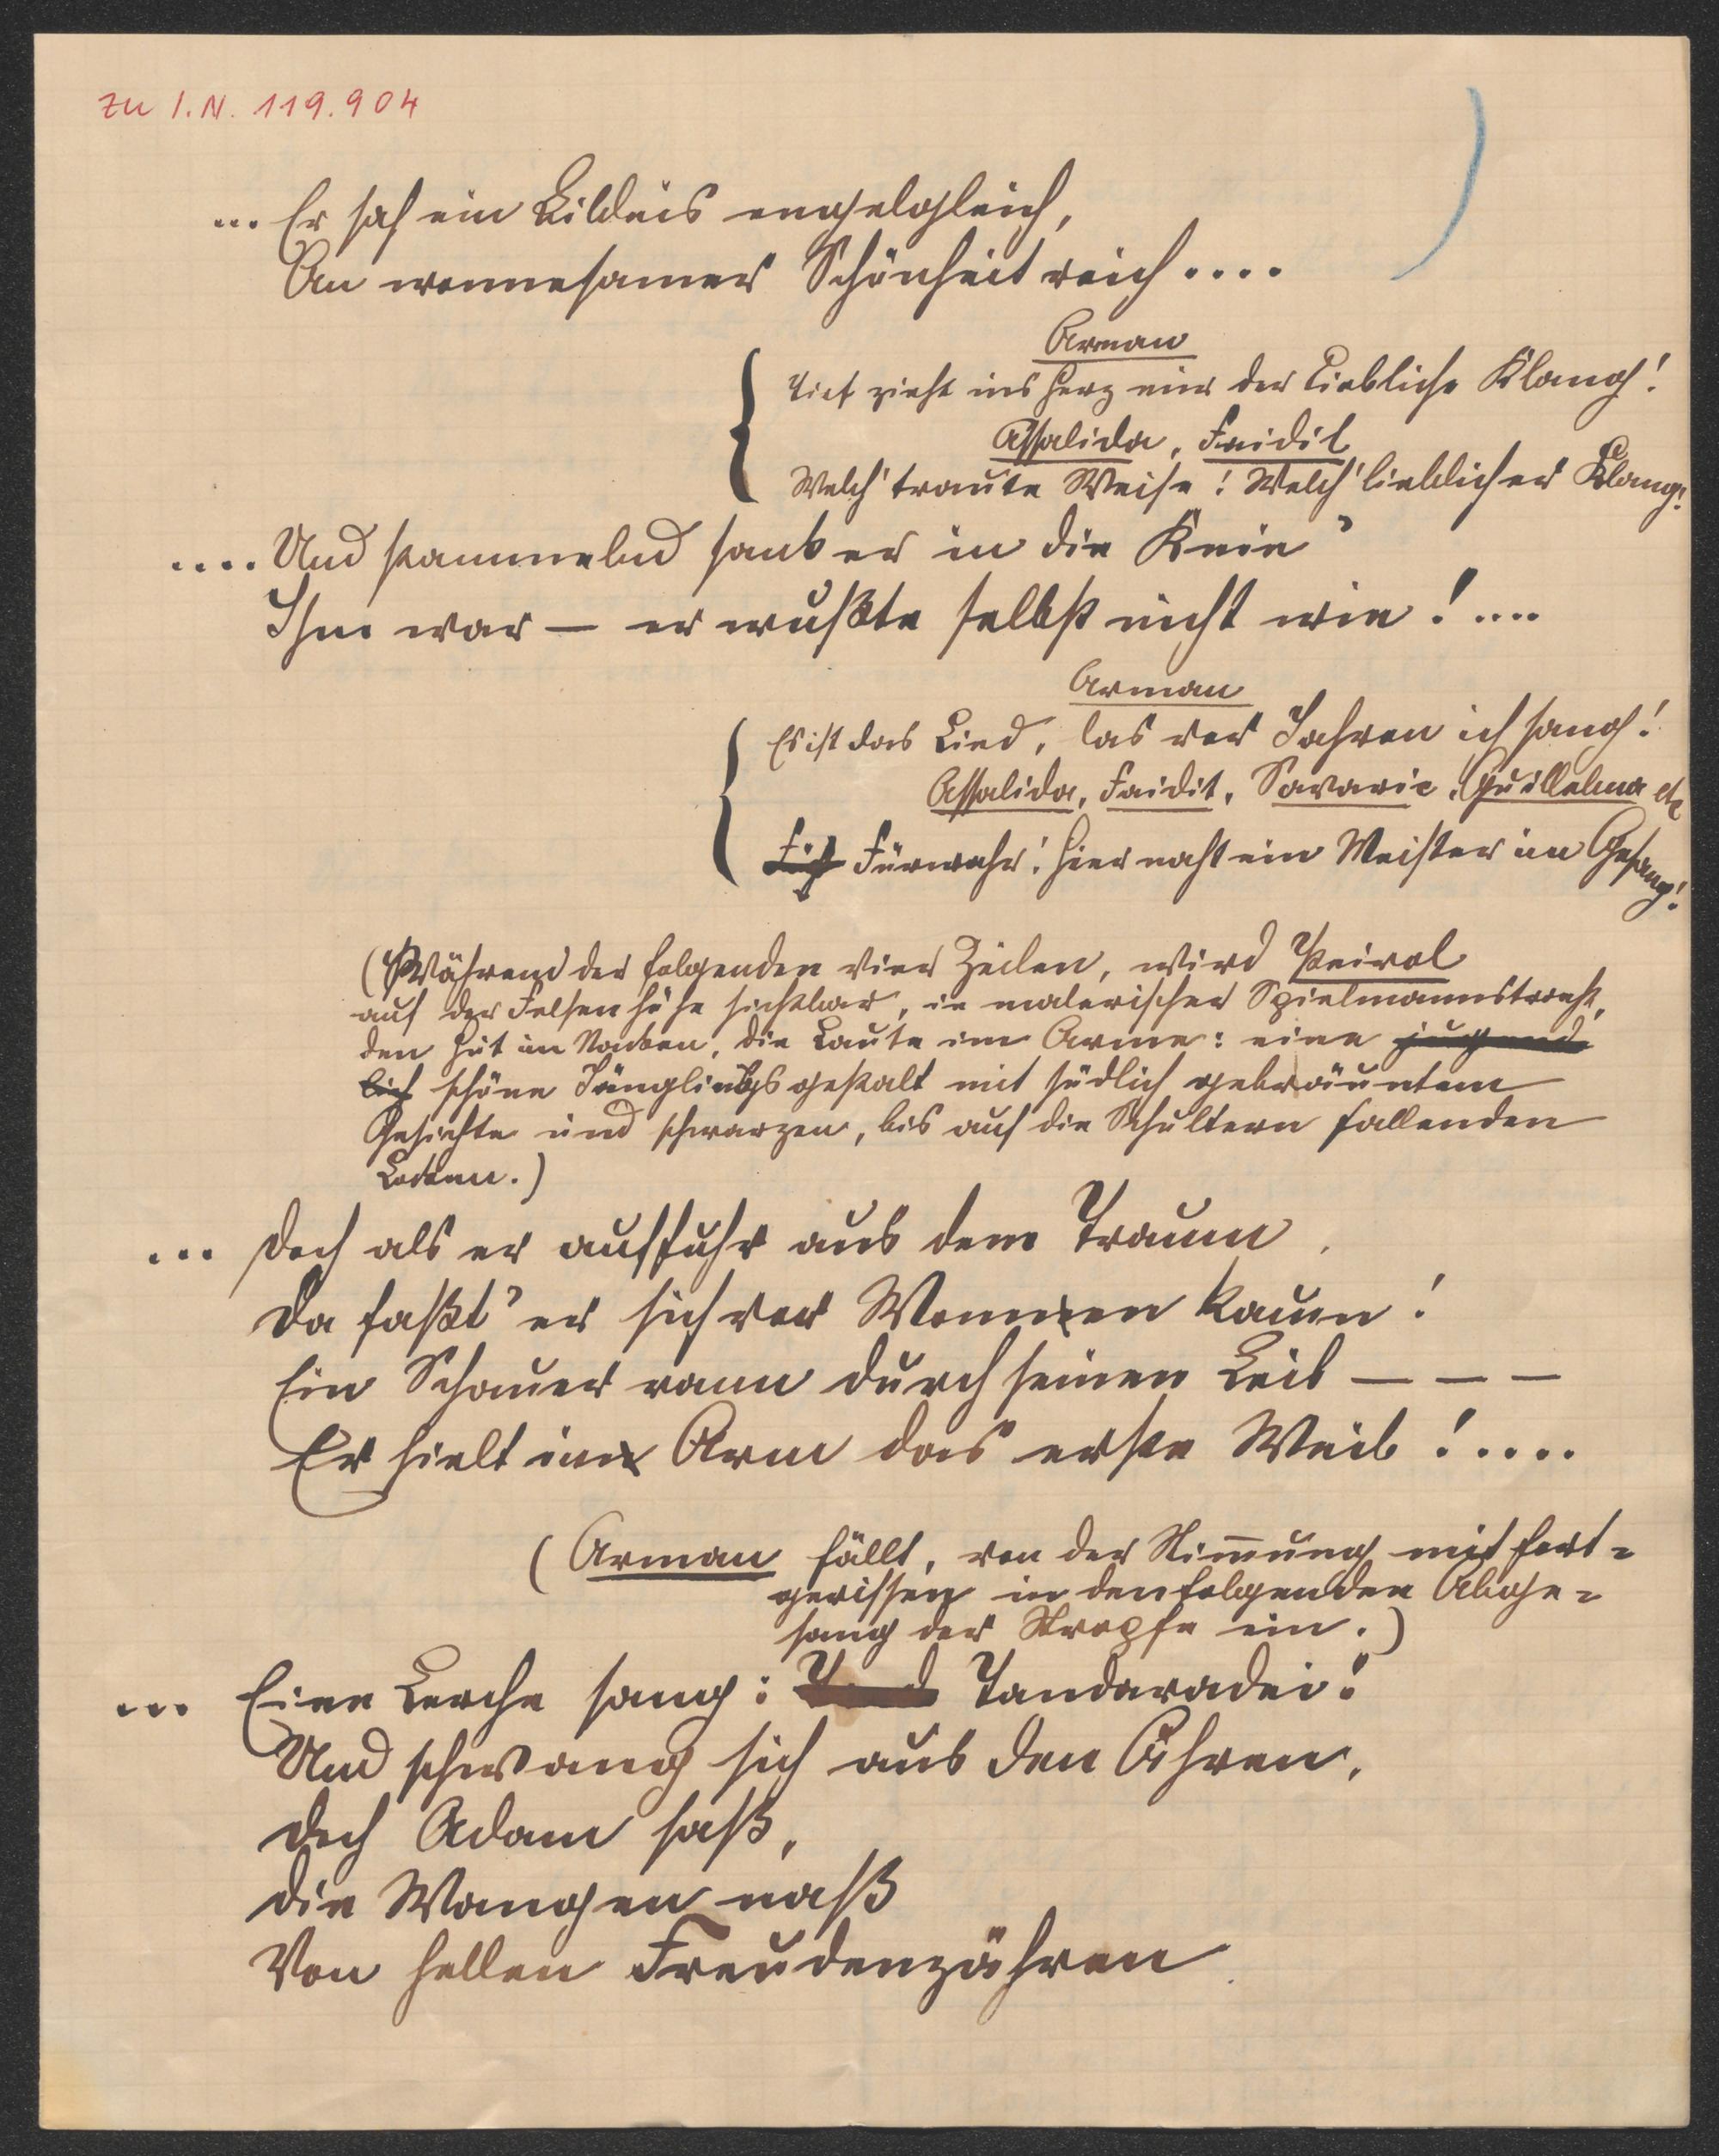 zu I.N. 119.904
... Er sah ein Bildnis engelgleich,
An wonnesamer Schönheit reich....
Arman
Tief zieht ins Herz mir der liebliche Klang!
Assalida, Faidit
Welch' traute Weise! Welch' lieblicher Klang!
.... Und stammelnd sank er in die Knie'
Ihm war — er wußte selbst nicht wie!....
Arman
Es ist das Lied, das vor Jahren ich sang!
Assalida, Faidit, Savaric, Guillelma etc
Fürwahr! hier naht ein Meister im Gesang!
(Während der folgenden vier Zeilen, wird Peirol
auf der Felsenhöhe sichtbar, in malerischer Spielmannstracht,
den Hut im Nacken, die Laute im Arme: eine jugend
lich schöne Jünglingsgestalt mit südlich gebräuntem
Gesichte und schwarzen, bis auf die Schultern fallenden
Locken.)
... Doch als er auffuhr aus dem Traum,
Da faßt' er sich vor Wonnen kaum!
Ein Schauer rann durch seinen Leib — — —
Er hielt im Arm das erste Weib!....
(Arman fällt, von der Stimmung mit fort-
gerissen in den folgenden Abge-
sang der Strophe ein.)
... Eine Lerche sang: Tandaradei!
Und schwang sich aus den Ähren,
Doch Adam saß,
Die Wangen naß
Von hellen Freudenzähren